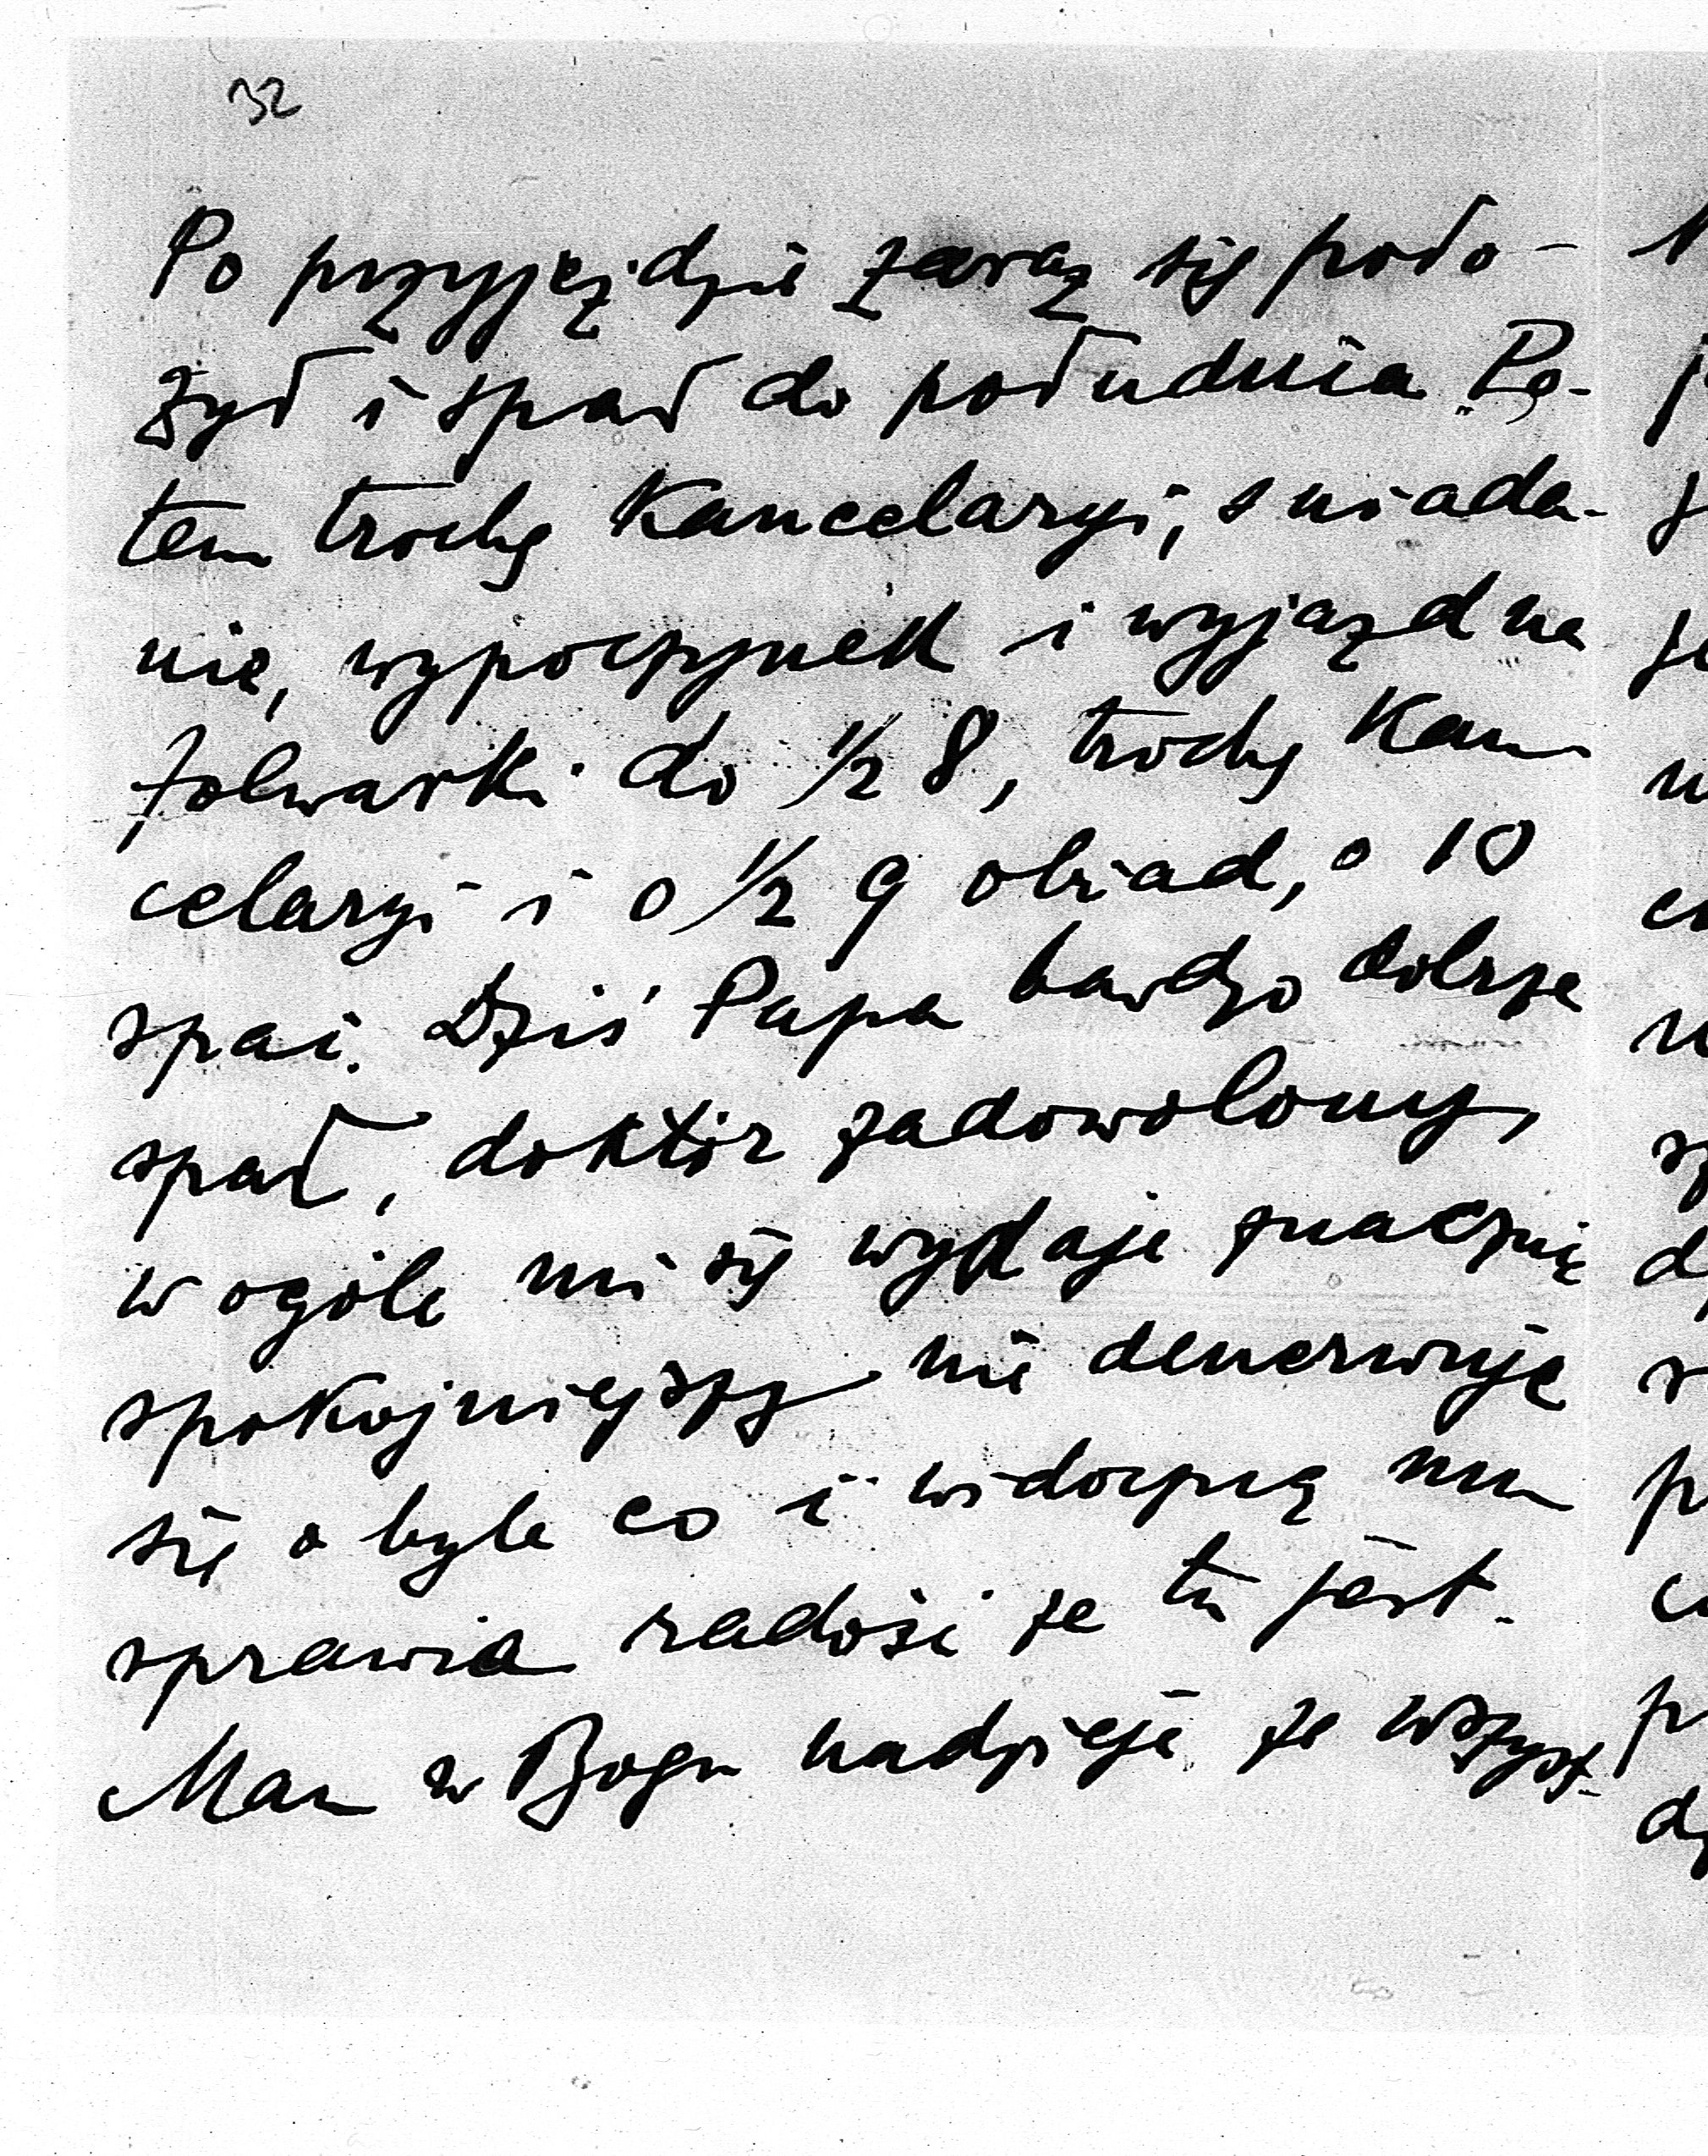 32
Po przyjeździe zaraz się poło-
żył i spał do południa Po-
tem trochę Kancelaryi, sniada-
nie, wypoczynek i wyjazd na
folwarki do 1/2 8, trochę Kan
celaryi i o 1/2 9 obiad, o 10
spać. Dziś Papa bardzo dobrze
spał, doktór zadowolony,
w ogóle mi się wydaje znacznie
spokojniejszy nie denerwuje
się o byle co i widoczną mu
sprawia radość że tu jest.
Mam w Bogu nadzieję że wszyst-